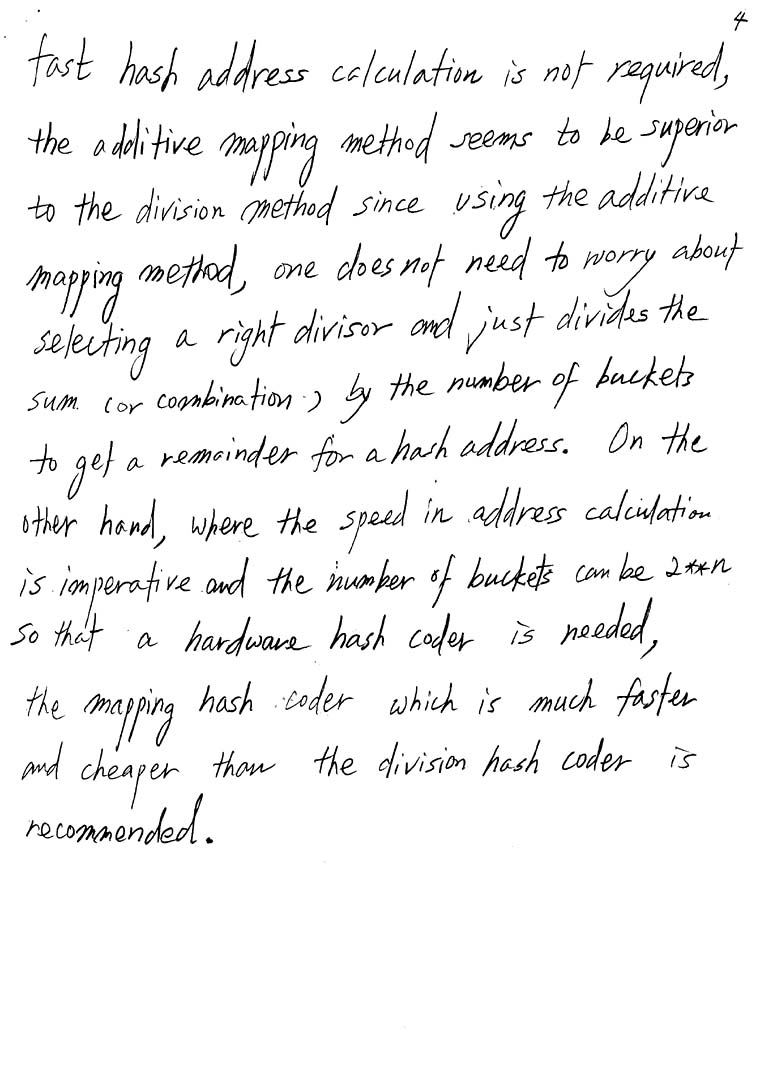 4
fast hash address calculation is not required,
the additive mapping method seems to be superior
to the division method since using the additive
mapping method, one does not need to worry about
selecting a right divisor and just divides the
sum (or combination) by the number of buckets
to get a remainder for a hash address. On the
other hand, where the speed in address calculation
is imperative and the number of buckets can be 2**n
so that a hardware hash coder is needed,
the mapping hash coder which is much faster
and cheaper than the division hash coder is
recommended.